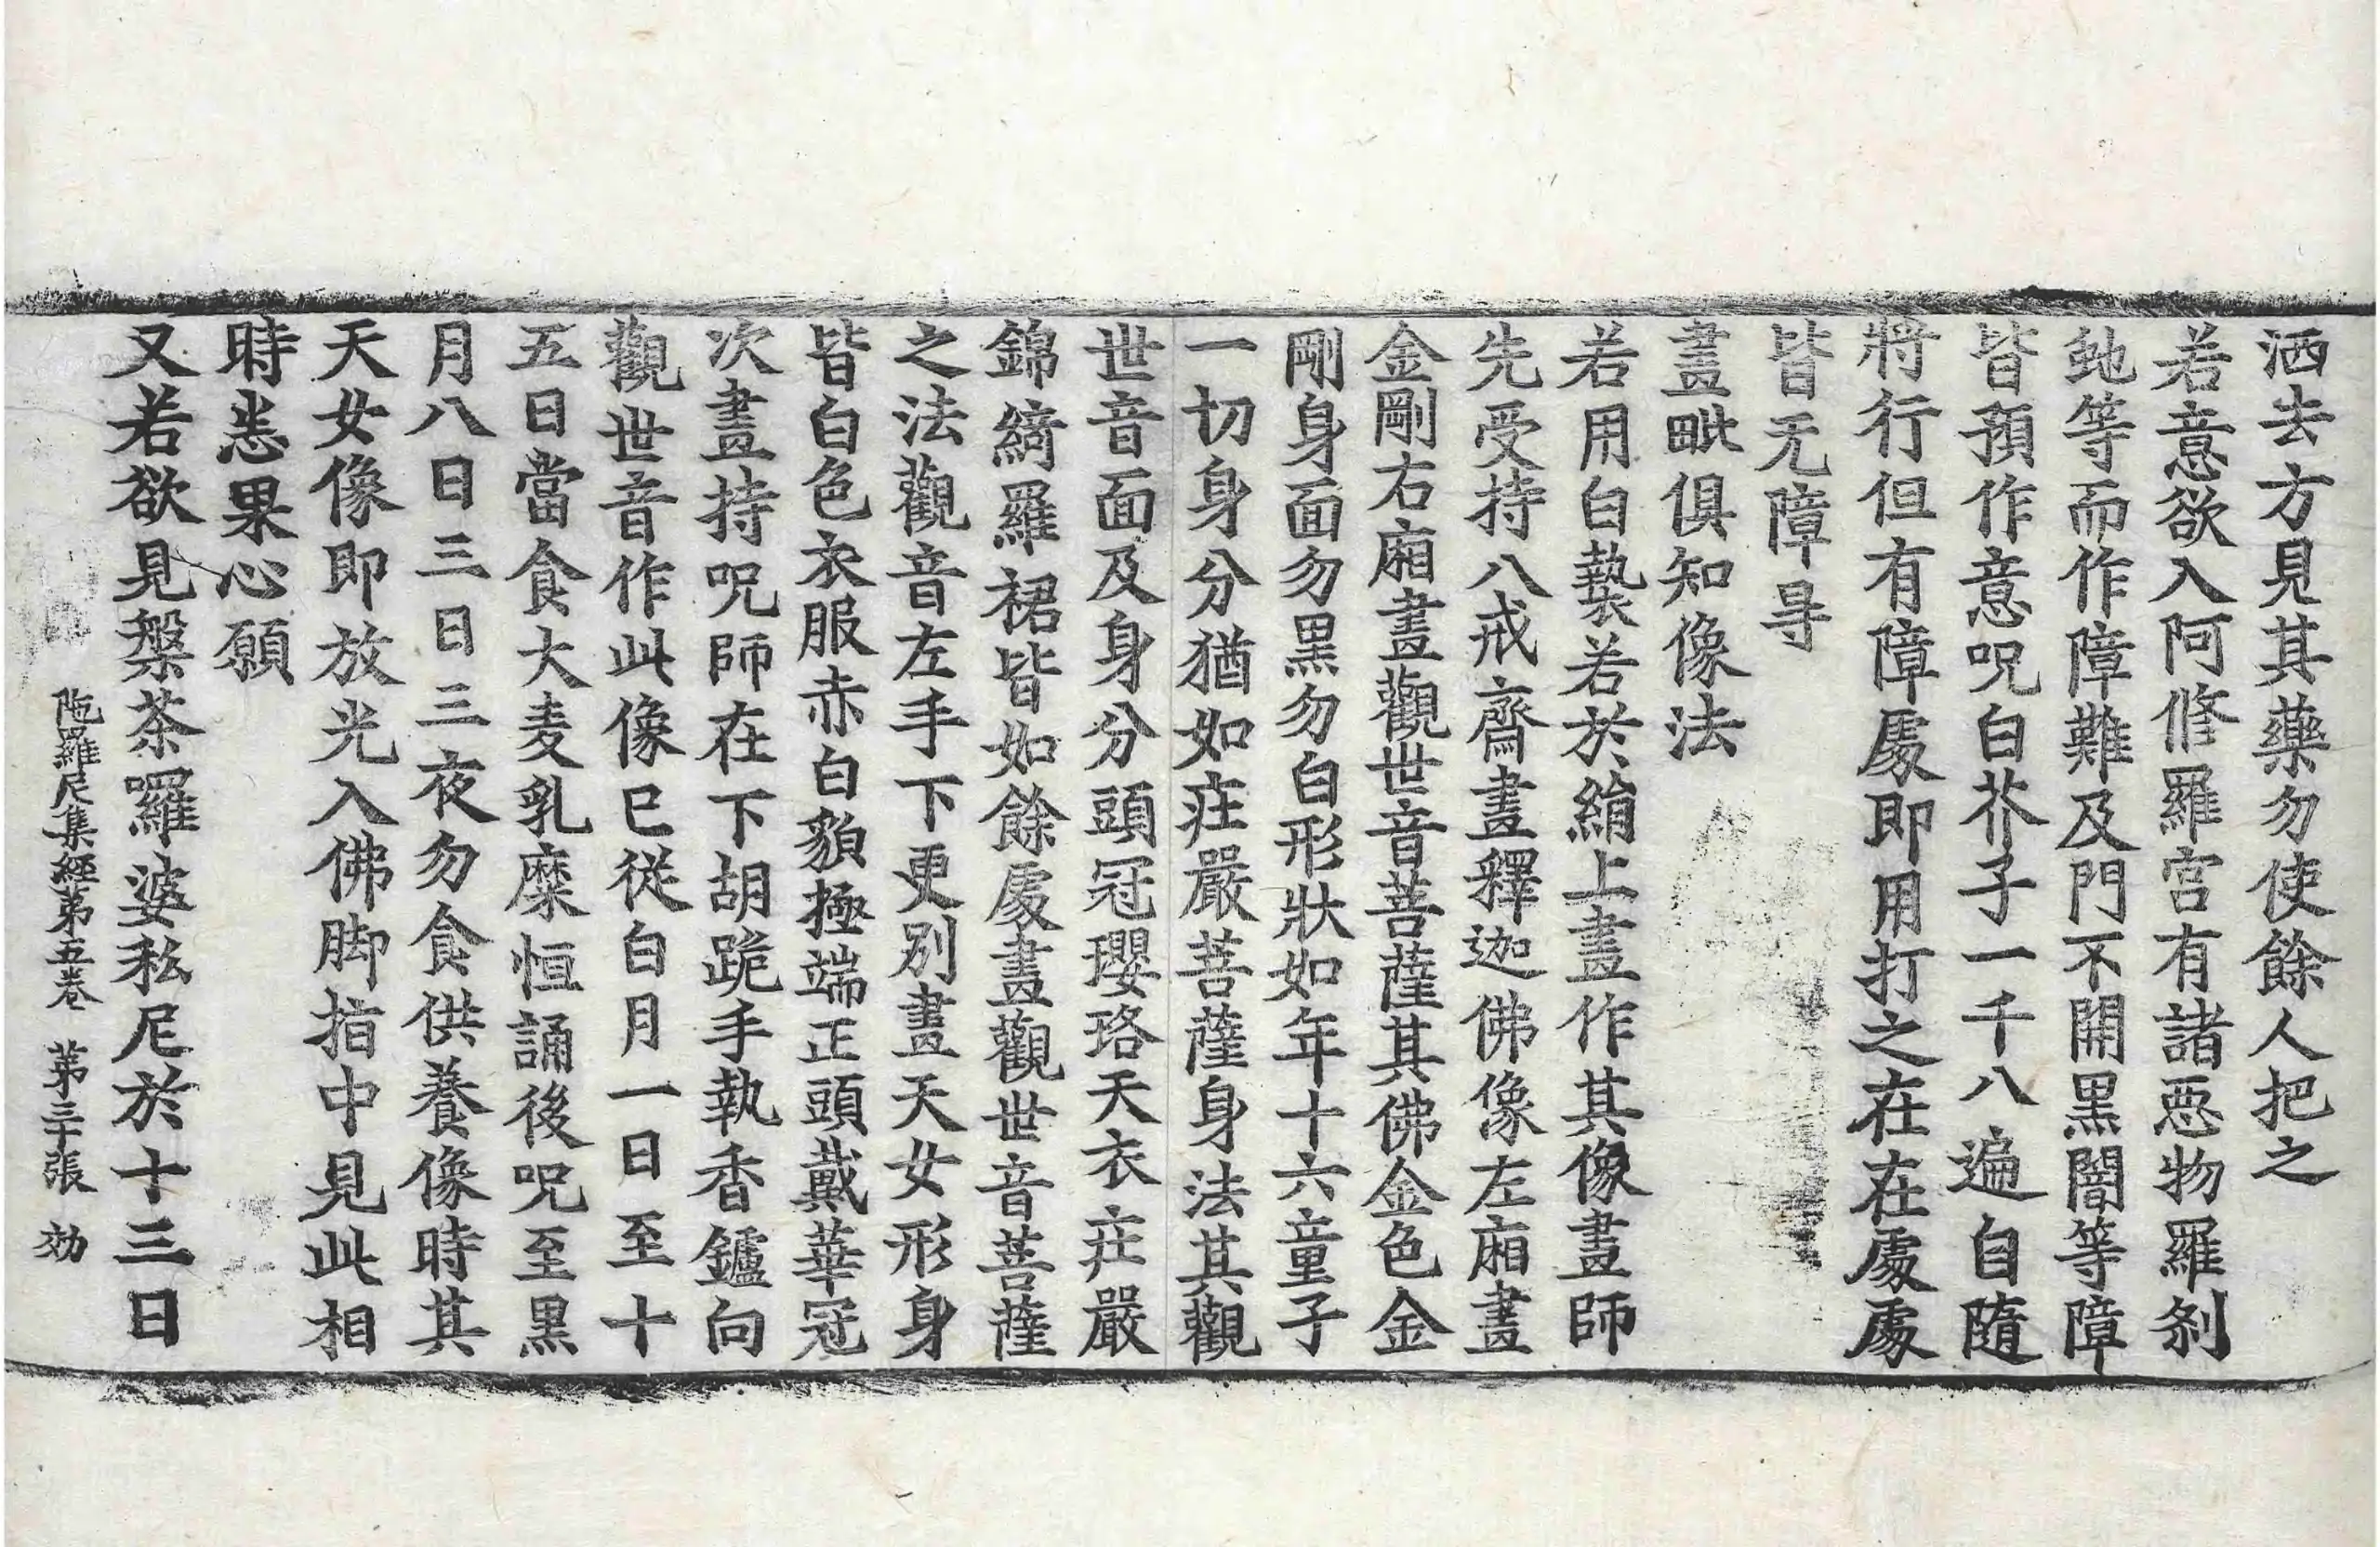 洒去方見其藥勿使餘人把之
若意欲入阿修羅宮有諸惡物羅剎
虵等而作障難及門不開黑闇等障
皆預作意呪白芥子一千八遍自隨
將行但有障處即用打之在在處處
皆无障㝵
畫毗俱知像法
若用白㲲若於絹上畫作其像畫師
先受持八戒齋畫釋迦佛像左廂畫
金剛右廂畫觀世音菩薩其佛金色金
剛身面勿黑勿白形狀如年十六童子
一切身分猶如疘嚴菩薩身法其觀
世音面及身分頭冠瓔珞天衣疘嚴
錦綺羅裙皆如餘處畫觀世音菩薩
之法觀音左手下更別畫天女形身
皆白色衣服赤白貌極端正頭戴華冠
次畫持呪師在下胡跪手執香鑪向
觀世音作此像已從白月一日至十
五日當食大麦乳糜恒誦後呪至黑
月八日三日三夜勿食供養像時其
天女像即放光入佛脚指中見此相
時恙果心願
又若欲見槃茶囉婆私尼於十三日
陁羅尼集經第五卷 第三十張 効